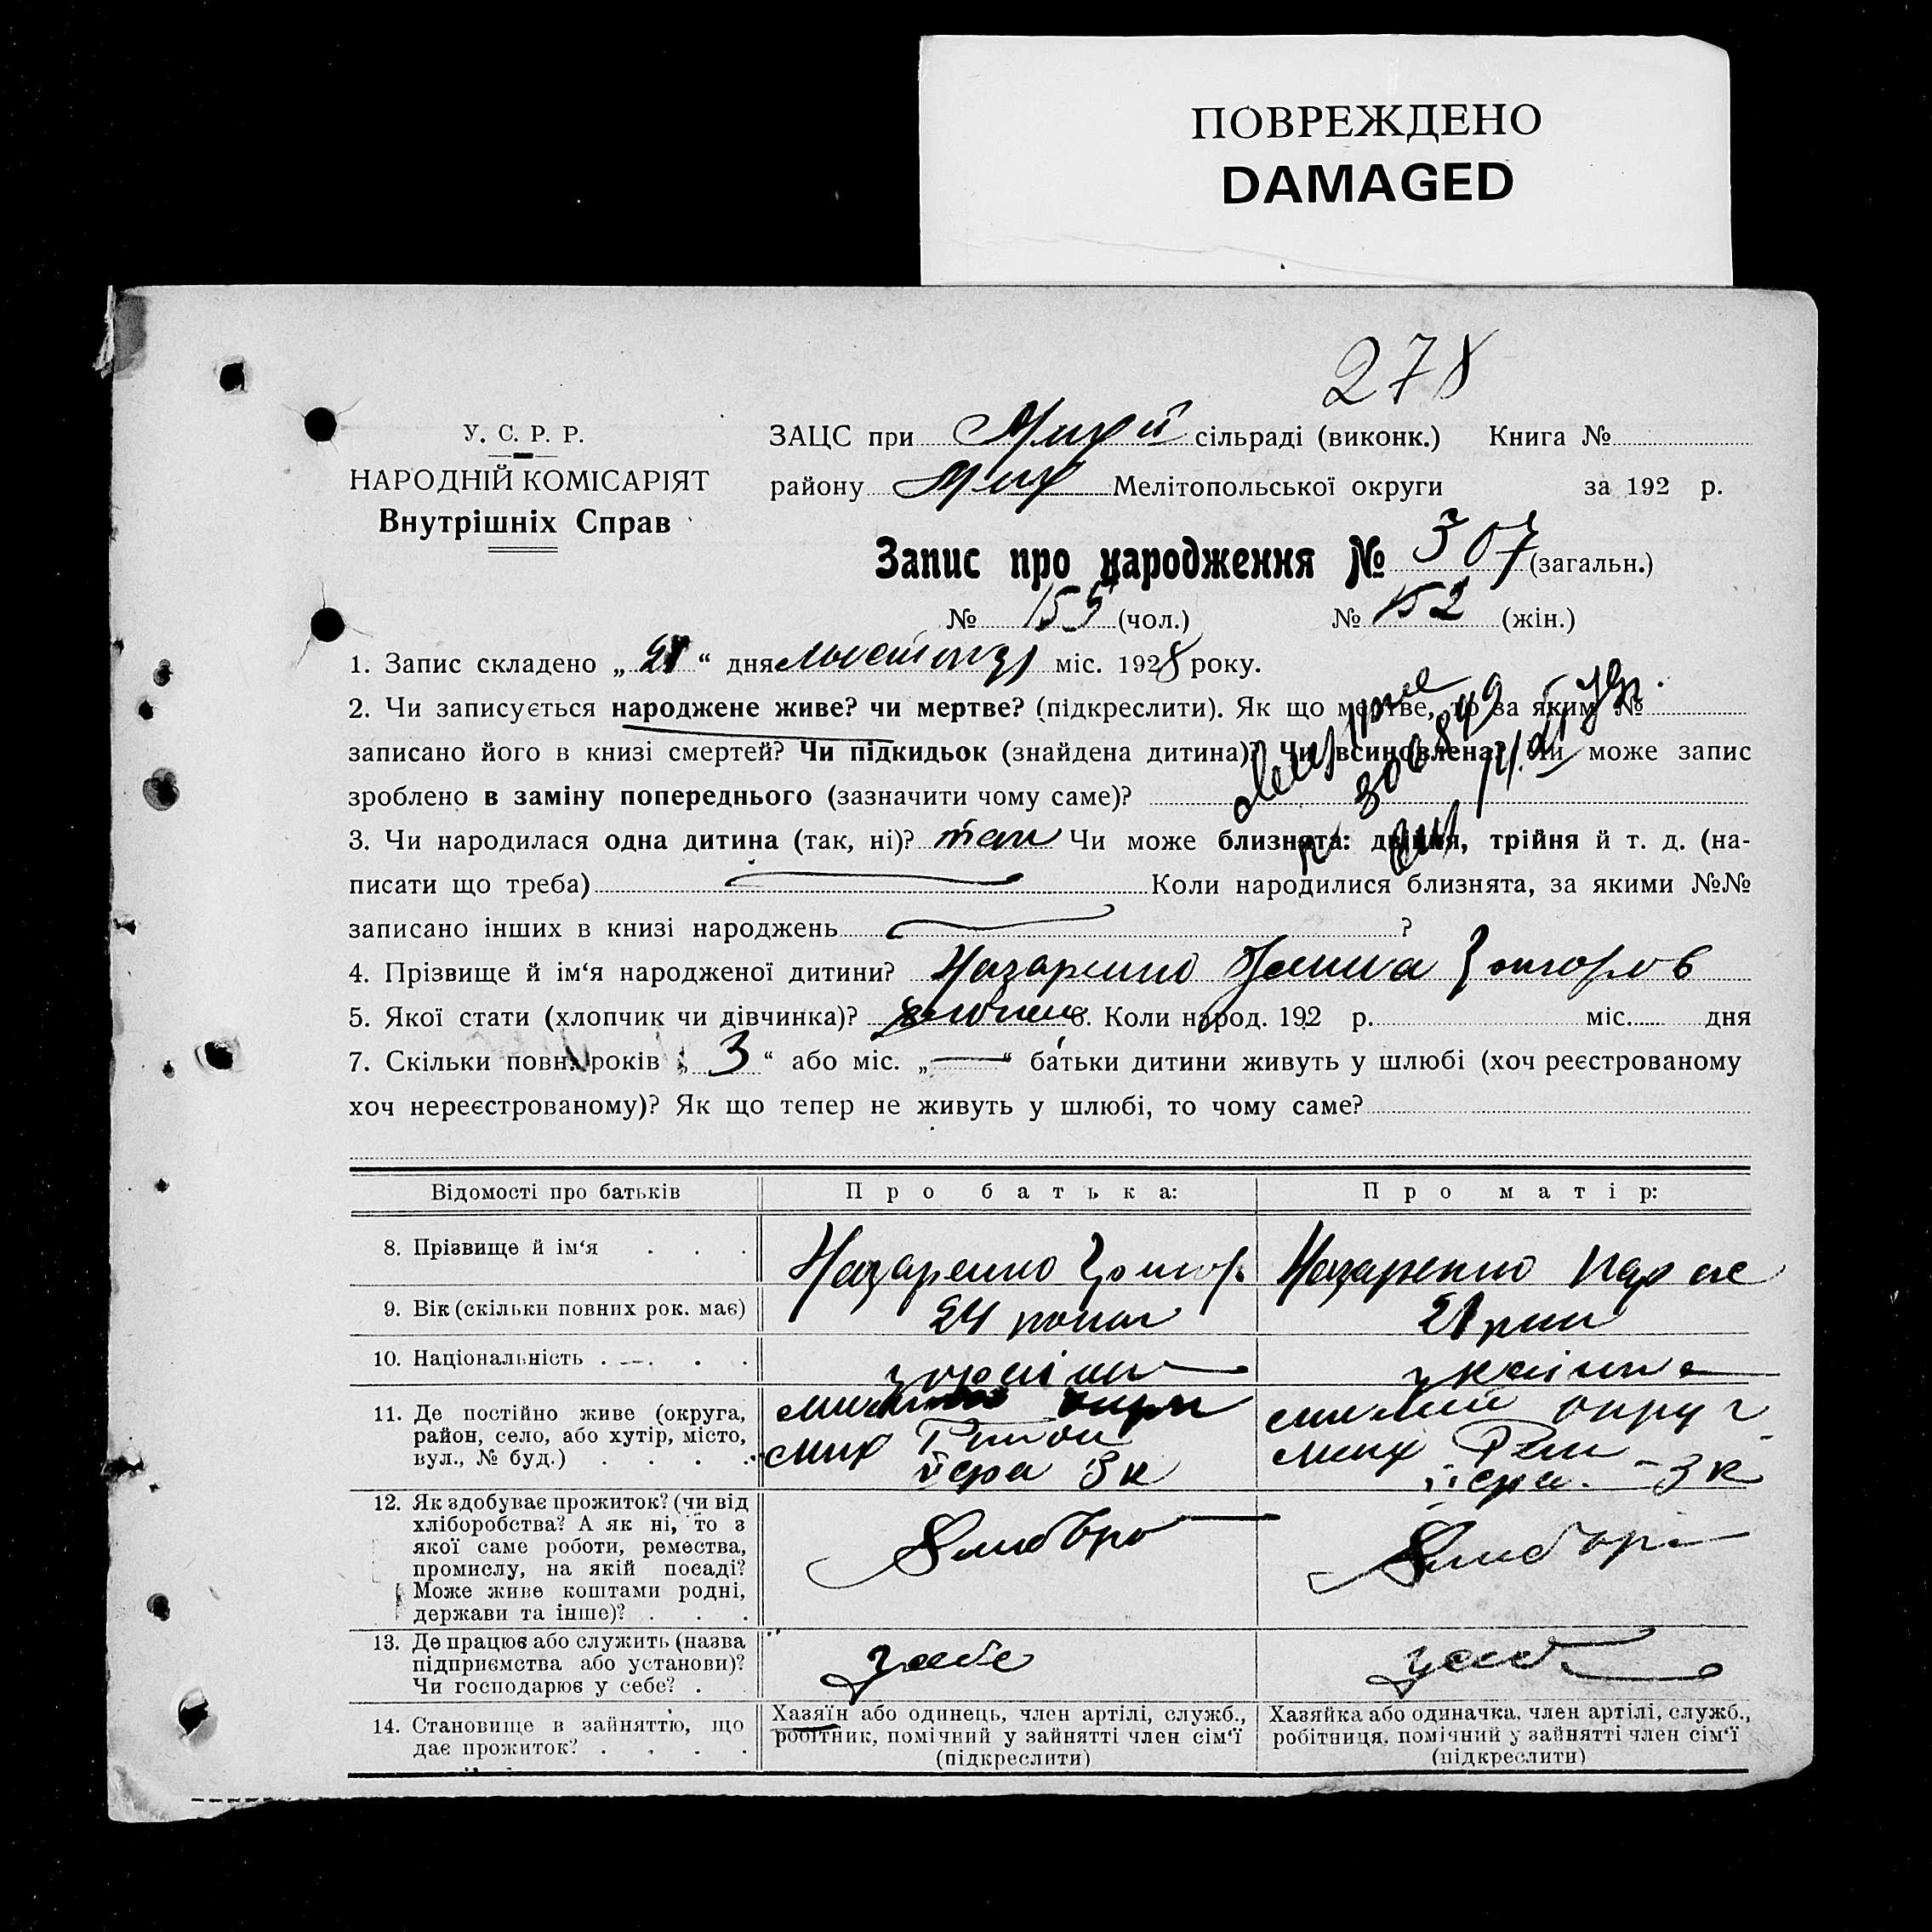 ПОВРЕЖДЕНО
DAMAGED
278
У. С. Р. Р.
НАРОДНІЙ КОМІСАРІЯТ
Внутрішніх Справ
ЗАЦС при сільраді (виконк.) Книга №
району Мих Мелітопольської округи за 192 р.
Запис про народження № 307 (загальн.)
№ 155 (чол.) № 152 (жін.)
1. Запис складено „ “ дня міс. 1928 року.
2. Чи записується народжене живе? чи мертве? (підкреслити). Як що мертве, то за яким №
записано його в книзі смертей? Чи підкидьок (знайдена дитина)? Чи всиновлена? Чи може запис
зроблено в заміну попереднього (зазначити чому саме)?
3. Чи народилася одна дитина (так, ні)? так Чи може близнята: двійня, трійня й т. д. (на-
писати що треба) Коли народилися близнята, за якими №№
записано інших в книзі народжень ?
4. Прізвище й ім‘я народженої дитини? Назаренко
5. Якої стати (хлопчик чи дівчинка)? 6. Коли народ. 192 р. міс. дня
7. Скільки повн. років „ 3 “ або міс. „ — “ батьки дитини живуть у шлюбі (хоч реєстрованому
хоч нереєстрованому)? Як що тепер не живуть у шлюбі, то чому саме?
Відомості про батьків
Про батька:
Про матір:
8. Прізвище й ім‘я . . .
Назаренко Григор
Назаренко
9. Вік (скільки повних рок. має)
24 роки
21 рик
10. Національність . . . .
україн
україн
11. Де постійно живе (округа,
район, село, або хутір, місто,
вул., № буд.) . . . .
округ
Мих Район
3 к
округ
Мих
3 к
12. Як здобуває прожиток? (чи від
хліборобства? А як ні, то з
якої саме роботи, ремества,
промислу, на якій посаді?
Може живе коштами родні,
держави та інше)? . . .
Хлибороб
Хлибороб
13. Де працює або служить (назва
підприємства або установи)?
Чи господарює у себе? .
у себе
у себе
14. Становище в зайняттю, що
дає прожиток? . . . .
Хазяїн або одинець, член артілі, служб.,
робітник, помічний у зайнятті член сім‘ї
(підкреслити)
Хазяйка або одиначка, член артілі, служб.,
робітниця, помічний у зайнятті член сім‘ї
(підкреслити)